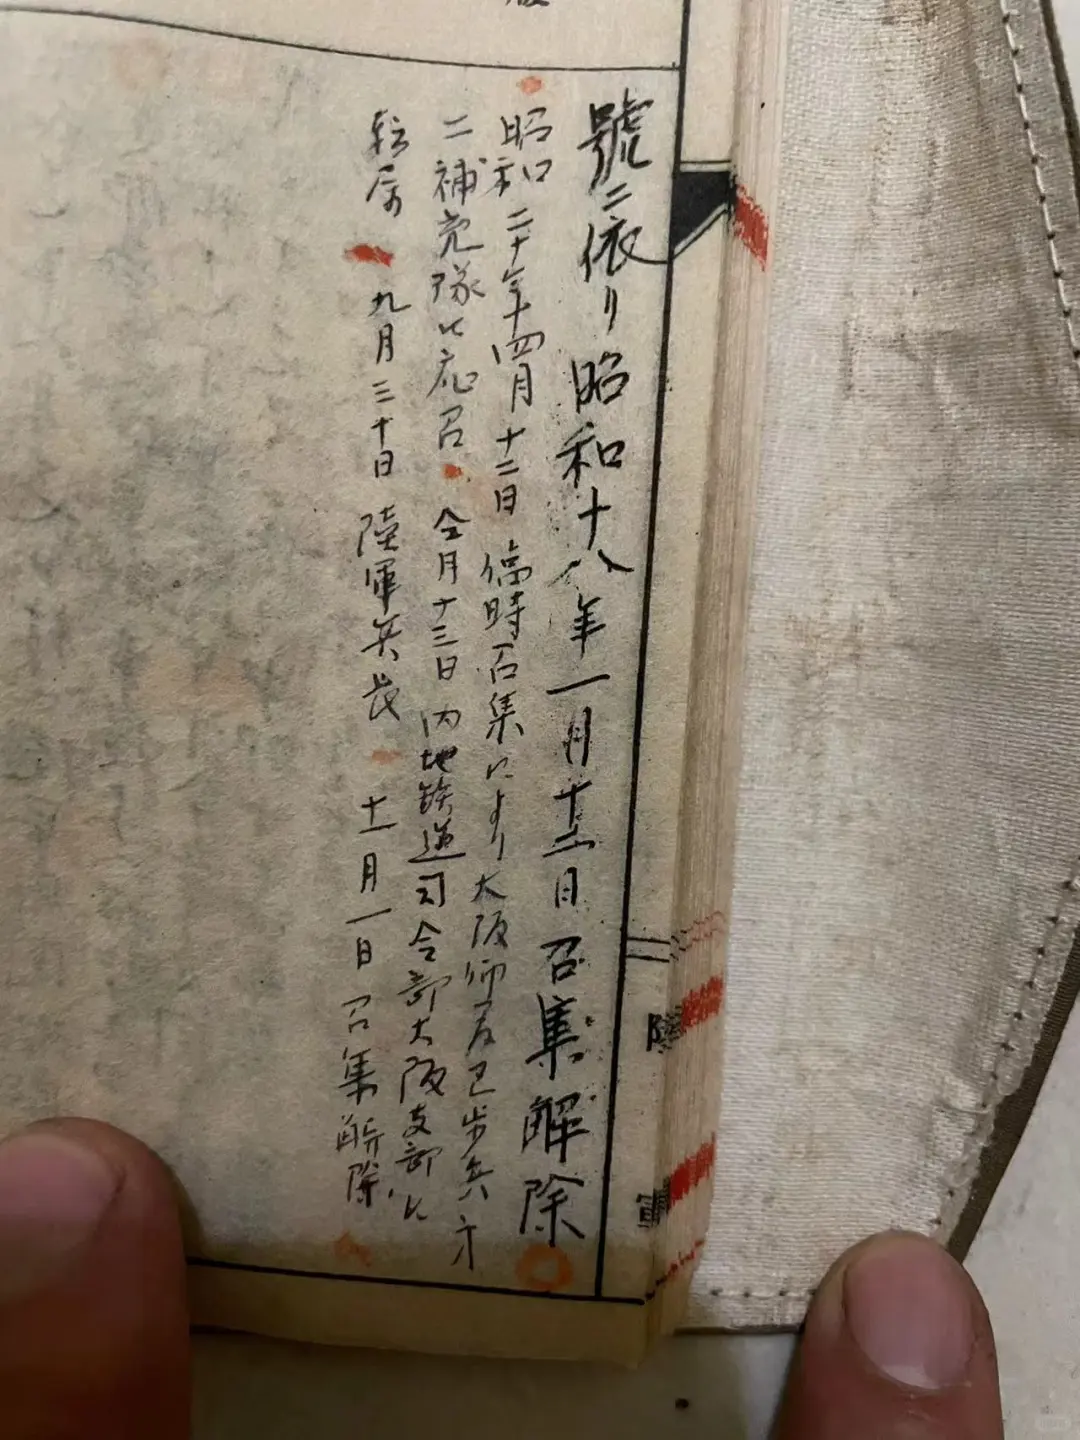 號ニ依リ昭和十八年一月十二日召集解除
昭和二十年四月十二日臨時召集により大阪師管区歩兵才
二補充隊に応召 仝月十三日内地鉄道司令部大阪支部に
転属 九月三十日 陸軍兵長 十一月一日召集解除
陸軍